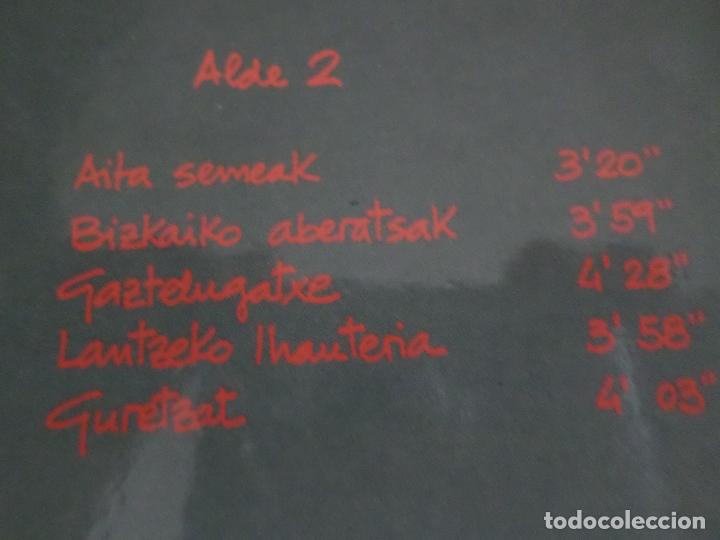 Alde 2
Aita semeak 3'20"
Bizkaiko aberatsak 3'59"
Gaztelugatxe 4'28"
Lantzeko Ihauteria 3'58"
Guretzat 4'03"
todocoleccion